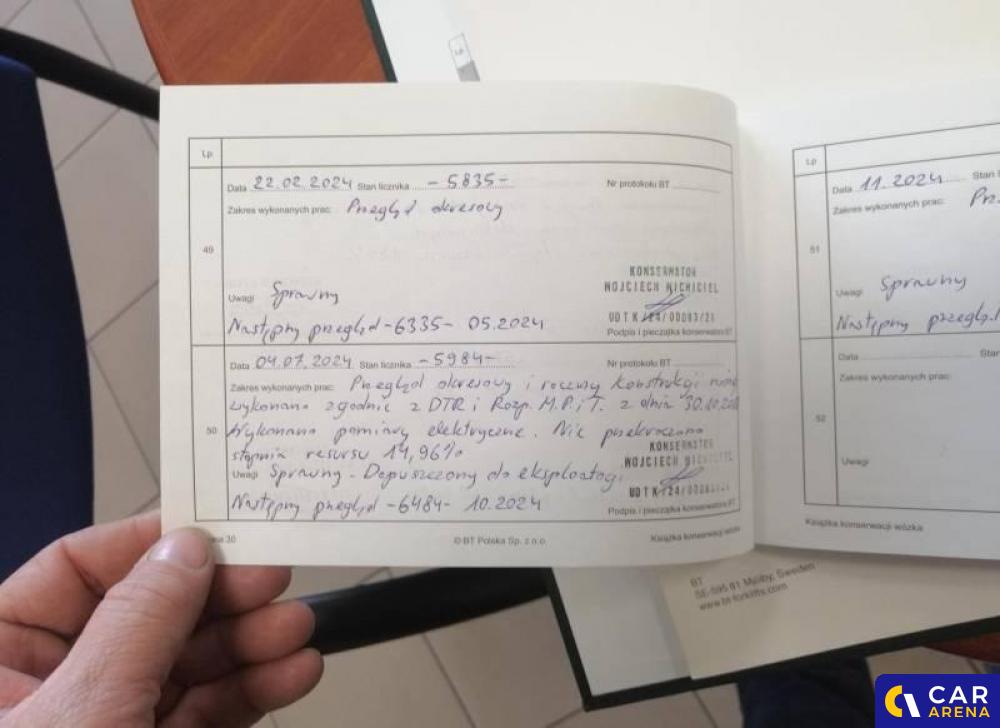 Lp.
Lp
Data 22.02.2024 Stan licznika -5835- Nr protokołu BT
Zakres wykonanych prac: Przegląd okresowy
49
KONSERWATOR
WOJCIECH
Uwagi Sprawny
UDT K/24/00083/21
Następny przegląd -6335- 05.2024
Podpis i pieczątka konserwatora BT
Data 04.07.2024 Stan licznika -5984- Nr protokołu BT
Zakres wykonanych prac: Przegląd okresowy i roczny konstrukcji
wykonano zgodnie z DTR i Rozp. M.P.iT. z dnia 30.10.
50 Wykonano pomiary elektryczne. Nie przekroczono
stopnia resursu 14,96%
KONSERWATOR
WOJCIECH
Uwagi Sprawny - Dopuszczony do eksploatacji
UDT K/24/00083/21
Następny przegląd -6484- 10.2024
Podpis i pieczątka konserwatora BT
30
© BT Polska Sp. z o.o.
Książka konserwacji wózka
Lp
Data 11.2024 Stan
Zakres wykonanych prac:
51
Uwagi Sprawny
Następny przegląd
Data Stan
Zakres wykonanych prac:
52
Uwagi
Książka konserwacji wózka
BT
SE-595 81 Mjölby, Sweden
www.bt-forklifts.com
CAR
ARENA